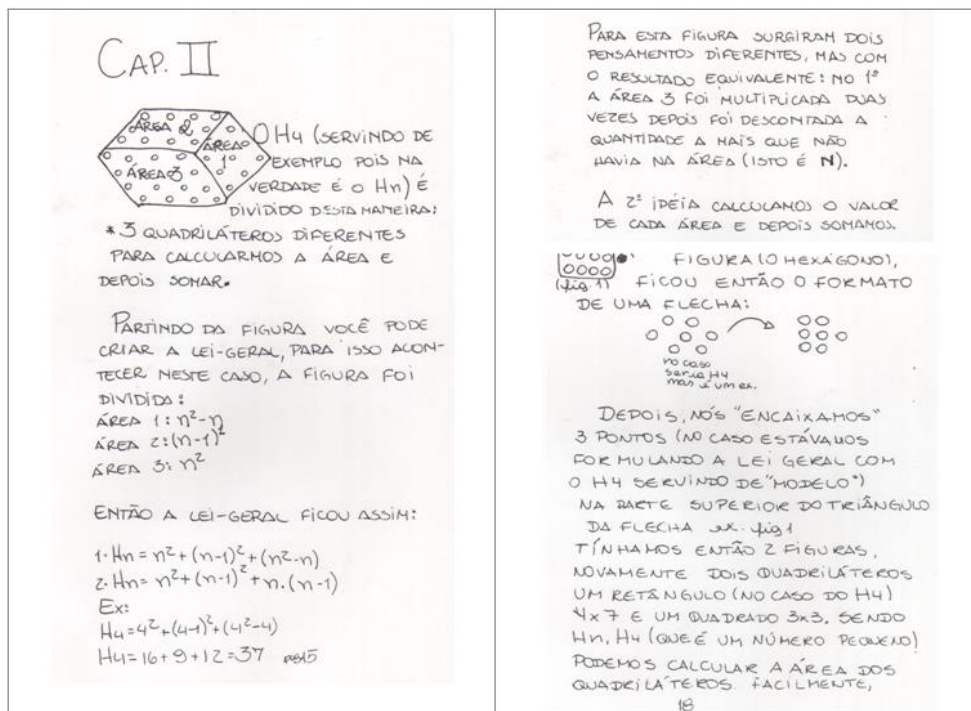 CAP. II
ÁREA 2
ÁREA 1
ÁREA 3
O H4 (SERVINDO DE
EXEMPLO POIS NA
VERDADE É O Hn) É
DIVIDIDO DESTA MANEIRA:
* 3 QUADRILÁTEROS DIFERENTES
PARA CALCULARMOS A ÁREA E
DEPOIS SOMAR.
PARTINDO DA FIGURA VOCÊ PODE
CRIAR A LEI-GERAL, PARA ISSO ACON-
TECER NESTE CASO, A FIGURA FOI
DIVIDIDA:
ÁREA 1: n²-n
ÁREA 2: (n-1)²
ÁREA 3: n²
ENTÃO A LEI-GERAL FICOU ASSIM:
1. Hn = n² + (n-1)² + (n²-n)
2. Hn = n² + (n-1)² + n.(n-1)
EX:
H4 = 4² + (4-1)² + (4²-4)
H4 = 16 + 9 + 12 = 37
PARA ESTA FIGURA SURGIRAM DOIS
PENSAMENTOS DIFERENTES, MAS COM
O RESULTADO EQUIVALENTE: NO 1º
A ÁREA 3 FOI MULTIPLICADA DUAS
VEZES DEPOIS FOI DESCONTADA A
QUANTIDADE A MAIS QUE NÃO
HAVIA NA ÁREA (ISTO É N).
A 2ª IDÉIA CALCULAMOS O VALOR
DE CADA ÁREA E DEPOIS SOMAMOS.
FIGURA (O HEXÁGONO),
(fig. 1) FICOU ENTÃO O FORMATO
DE UMA FLECHA:
no caso
seria H4
mas é um ex.
DEPOIS, NÓS "ENCAIXAMOS"
3 PONTOS (NO CASO ESTÁVAMOS
FORMULANDO A LEI GERAL COM
O H4 SERVINDO DE "MODELO")
NA PARTE SUPERIOR DO TRIÂNGULO
DA FLECHA ex. fig 1
TÍNHAMOS ENTÃO 2 FIGURAS,
NOVAMENTE DOIS QUADRILÁTEROS
UM RETÂNGULO (NO CASO DO H4)
4x7 E UM QUADRADO 3x3. SENDO
Hn, H4 (QUE É UM NÚMERO PEQUENO)
PODEMOS CALCULAR A ÁREA DOS
QUADRILÁTEROS. FACILMENTE,
18